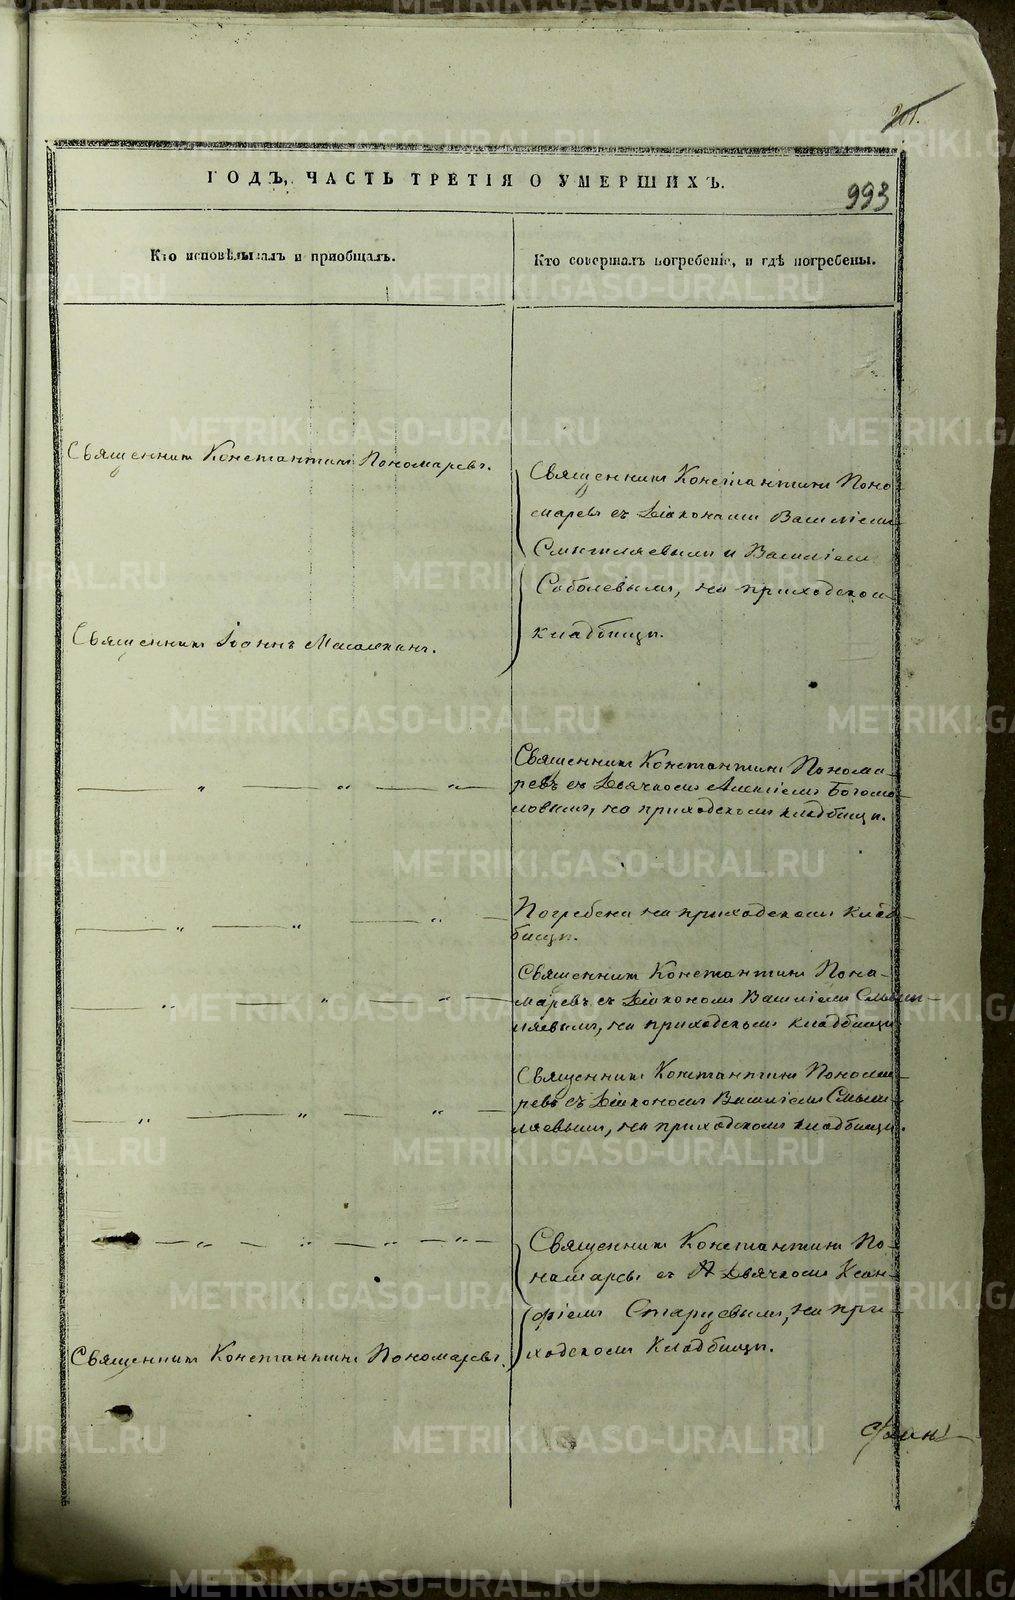 201.
ГОДЪ, ЧАСТЬ ТРЕТІЯ О УМЕРШИХЪ.
993
Кто исповѣдывалъ и пріобщалъ.
Кто совершалъ погребеніе, и гдѣ погребены.
Священникъ Константинъ Пономаревъ.
Священникъ Константинъ Поно-
маревъ съ Діаконами Василіемъ
Смышляевымъ и Василіемъ
Соболевымъ, на приходскомъ
кладбищѣ.
Священникъ Іоаннъ
Священникъ Константинъ Понома-
ревъ съ Дьячкомъ Алексіемъ Богомо-
ловымъ, на приходскомъ кладбищѣ.
Погребена на приходскомъ клад-
бищѣ.
Священникъ Константинъ Поно-
маревъ съ Діакономъ Василіемъ Смыш-
ляевымъ, на приходскомъ кладбищѣ
Священникъ Константинъ Понома-
ревъ съ Діакономъ Василіемъ Смыш-
ляевымъ, на приходскомъ кладбищѣ.
Священникъ Константинъ По-
номаревъ съ Дьячкомъ Ксан-
фіемъ Старцевымъ, на при-
ходскомъ кладбищѣ.
Священникъ Константинъ Пономаревъ.
METRIKI.GASO-URAL.RU